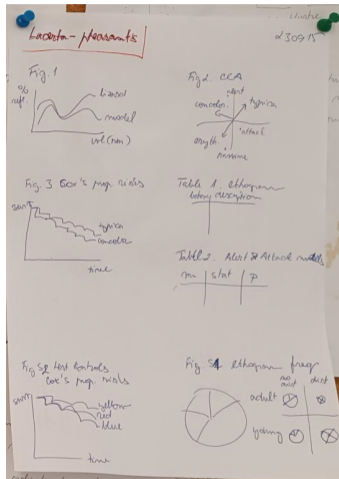 Lacerta - pheasants
230915
Fig. 1
%
refl.
lizard
model
wl (nm)
Fig 2. CCA
alert
concolor.
typica
eryth.
attack
passive
Fig. 3 Cox's prop. risks
surv
typica
concolor
time
Table 1. Ethogram
category description
Table 2. Alert & Attack models
stat
p
Fig S2 test controls
Cox's prop. risks
surv
yellow
red
blue
time
Fig S1 ethogram freq
adult
young